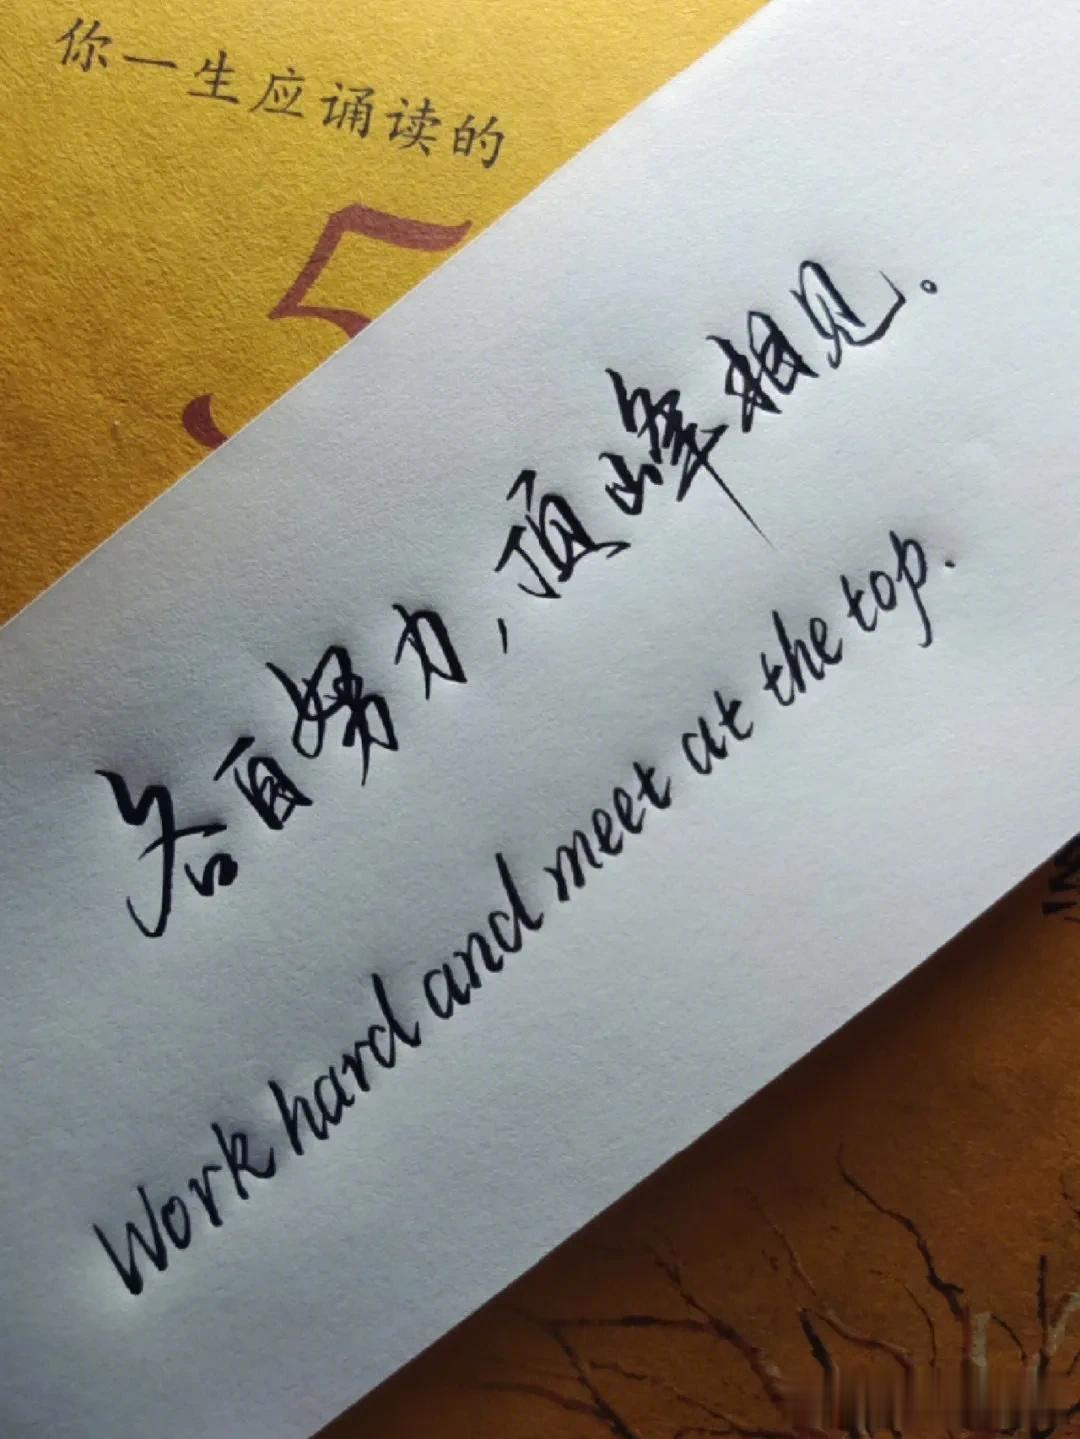 你一生应诵读的
5
各自努力，顶峰相见。
Work hard and meet at the top.